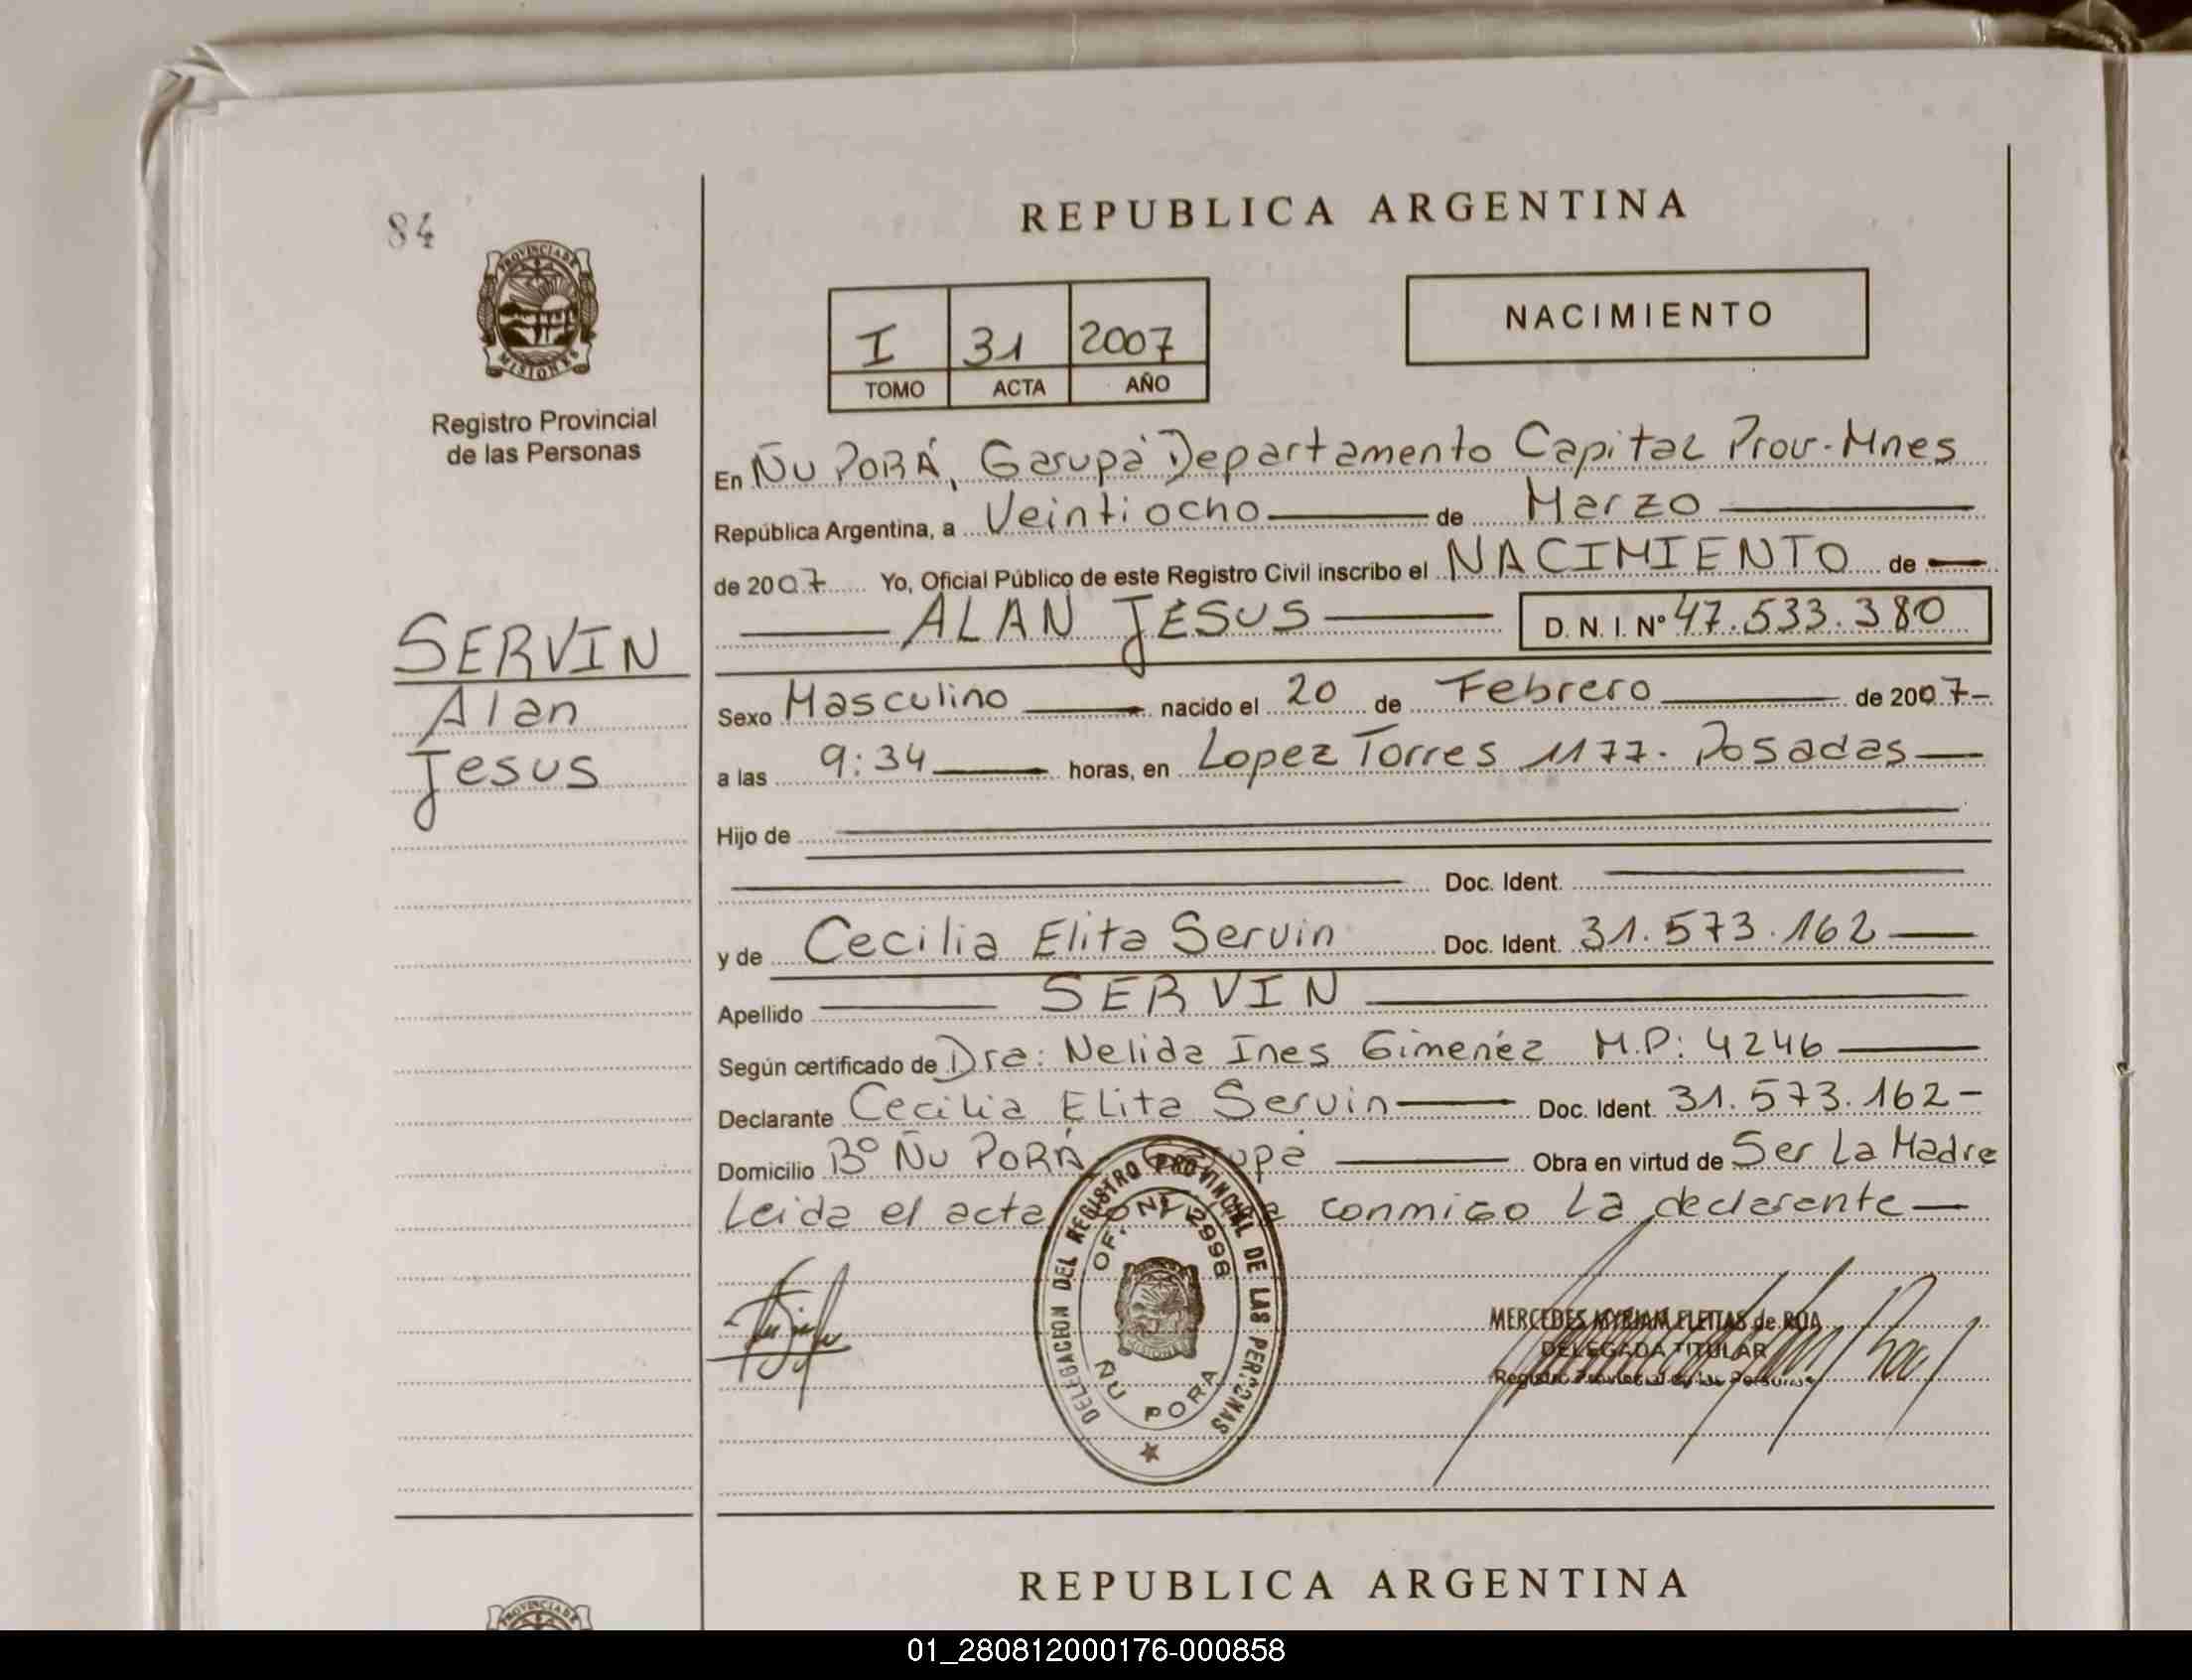 84
PROVINCIA DE
MISIONES
Registro Provincial
de las Personas
SERVIN
Alan
Jesus
REPUBLICA ARGENTINA
I 31 2007
TOMO ACTA AÑO
NACIMIENTO
En Ñu PORÁ, Garupá Departamento Capital Prov. Mnes
República Argentina, a Veintiocho de Marzo
de 2007 Yo, Oficial Público de este Registro Civil inscribo el NACIMIENTO de
ALAN JESUS D. N. I. Nº 47.533.380
Sexo Masculino nacido el 20 de Febrero de 2007
a las 9:34 horas, en Lopez Torres 1177. Posadas
Hijo de
Doc. Ident.
y de Cecilia Elita Servin Doc. Ident. 31.573.162
Apellido SERVIN
Según certificado de Dra: Nelida Ines Gimenéz M.P: 4246
Declarante Cecilia Elita Servin Doc. Ident. 31.573.162
Domicilio Bº Ñu PORÁ Obra en virtud de Ser La Madre
Leida el acta conmigo La declarante
DELEGACION DEL REGISTRO PROVINCIAL DE LAS PERSONAS
OF. Nº 2998
MISIONES
ÑU PORA
MERCEDES MYRIAM FLEITAS de ROA
DELEGADA TITULAR
Registro Provincial de las Personas
REPUBLICA ARGENTINA
PROVINCIA DE
01_280812000176-000858